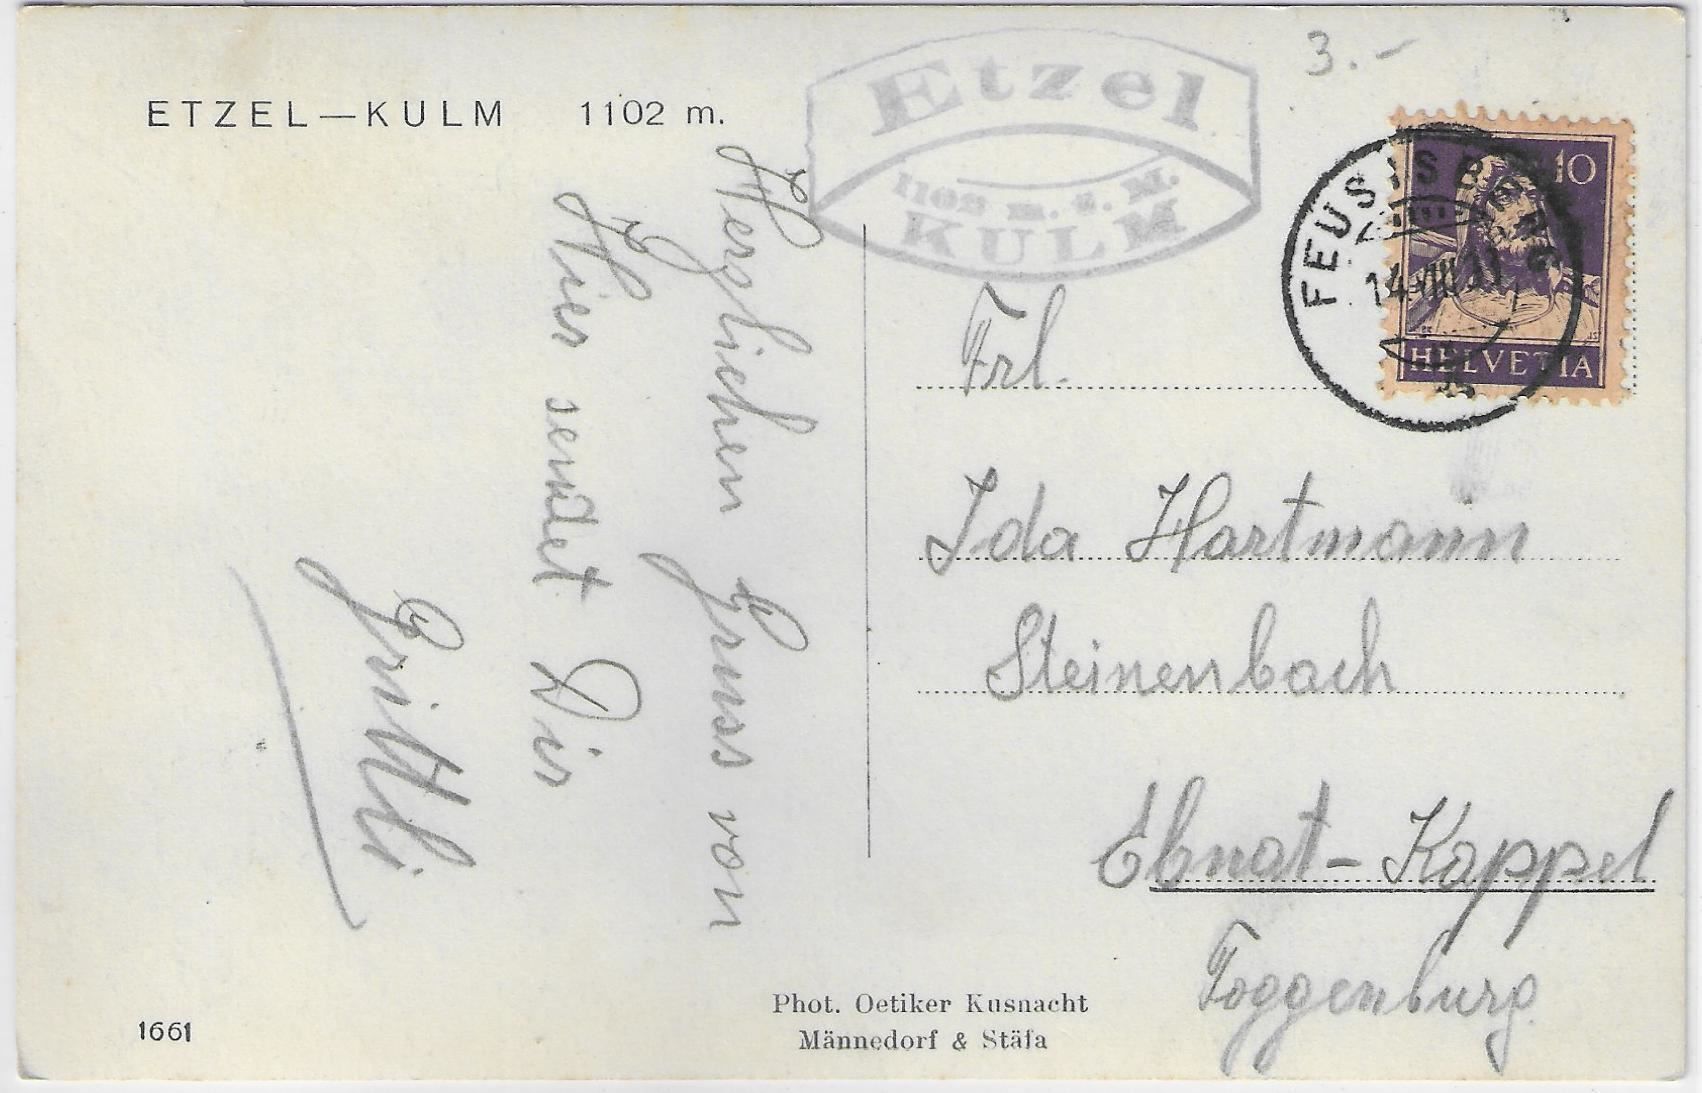 ETZEL—KULM 1102 m.
Etzel
1102 m. ü. M.
KULM
3.-
10
HELVETIA
FEUSISBERG
14.VIII
Herzlichen Gruss von
Hier sendet Dir
Grittli
Frl.
Ida Hartmann
Steinenbach
Ebnat-Kappel
Toggenburg
Phot. Oetiker Kusnacht
Männedorf & Stäfa
1661